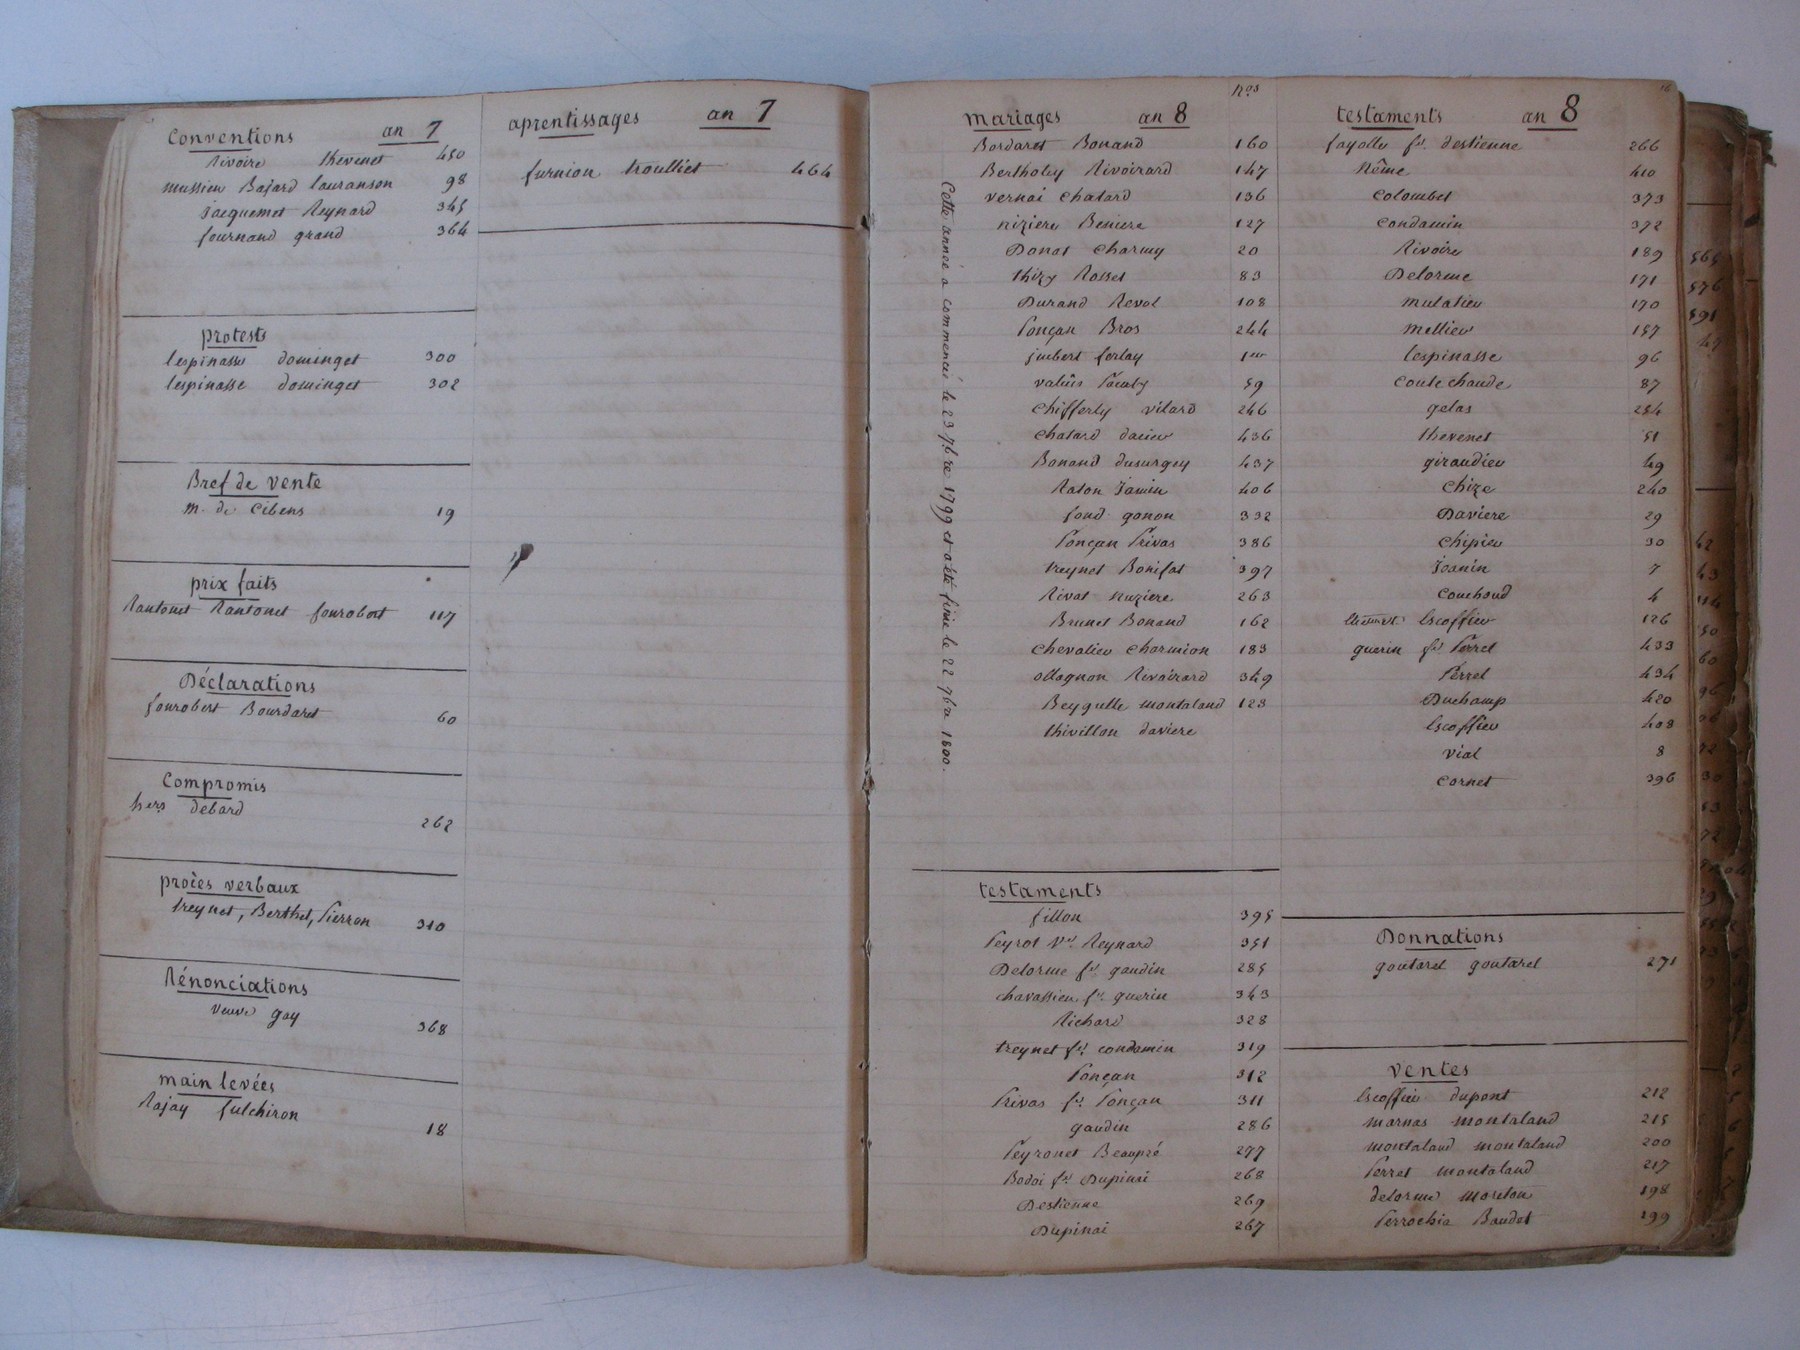 Conventions an 7
Rivoire thevenet 450
mussieu Bajard lauranson 98
jacquemet Reynard 345
fournand grand 364
protests
lespinasse dominget 300
lespinasse dominget 302
Bref de vente
m. de Cibens 19
prix faits
Rantonet Rantonet fourobert 117
Déclarations
fourobert Bourdaret 60
Compromis
hers debard
262
procès verbaux
treynet, Berthet, Pierron 310
Rénonciations
veuve gay
368
main levées
Rajay fulchiron
18
aprentissages an 7
furnion troulliet 464
Cette année a commencé le 23 7bre 1799 et a été finie le 22 9bre 1800.
nos
mariages an 8
Bordaret Bonand 160
Bertholey Rivoirard 147
vernai Chatard 136
niziere Beniere 127
Donat Charmy 20
thizy Rosset 83
Durand Revol 108
Ponçan Bros 244
jmbert ferlay 1er
59
Chifferly vilard 246
Chatard dacieu 436
Bonand dusurgey 437
Raton Jamin 406
fond gonon 332
Ponçan Privas 386
treynet Bonifat 397
Rivat nuziere 263
Brunet Bonand 162
Chevalier Charmion 183
ollagnon Rivoirard 349
Beygulle montaland 123
thivillon daviere
testaments
fillon 395
Peyrot Ve. Reynard 351
Delorme fe. gaudin 285
chavassieu fe. guerin 343
Richard 328
treynet fe. condamin 319
Ponçan 312
Privas fe. Ponçan 311
gaudin 286
Peyronet Beaupré 277
Bodoi fe. Dupinai 268
Destienne 269
Dupinai 267
testaments an 8
fayolle fe. destienne 266
Nême 410
Colombet 373
Condamin 372
Rivoire 189
Delorme 171
mulatieu 170
mellieu 157
lespinasse 96
Coutechaude 87
gelas 254
thevenet 51
giraudier 49
Chize 240
Daviere 29
Chipier 30
Joanin 7
Couchoud 4
Escoffier 126
guerin fe. Perret 433
Perret 434
Duchamp 420
Escoffier 408
vial 8
Cornet 396
Donnations
goutarel goutarel 271
ventes
Escoffier dupont 212
marnas montaland 215
montaland montaland 200
Perret montaland 217
delorme moreton 198
Perrochia Baudet 199